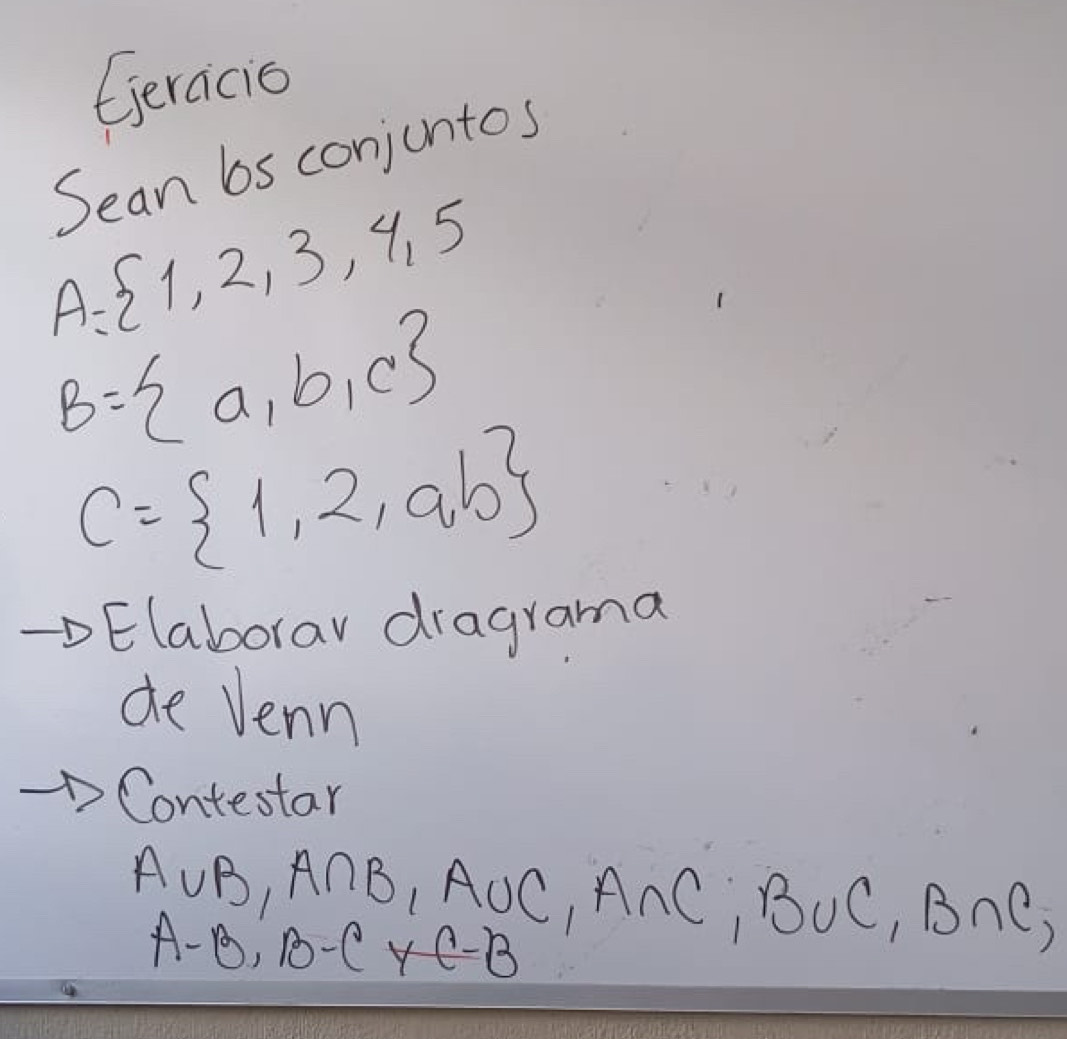 Ejercicio
Sean los conjuntos
A={1,2,3,4,5
B={ a,b,c}
C={1,2,a,b}
→Elaborar diagrama
de Venn
→Contestar
A∪B, A∩B, A∪C, A∩C, B∪C, B∩C,
A-B, B-C y C-B